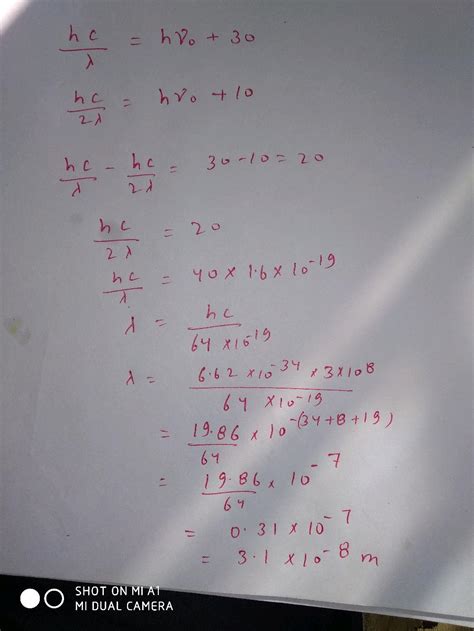 hc/λ = hν₀ + 30
hc/2λ = hν₀ + 10
hc/λ - hc/2λ = 30-10=20
hc/2λ = 20
hc/λ = 40 × 1.6 × 10⁻¹⁹
λ = hc/64 ×10⁻¹⁹
λ = 6.62 ×10⁻³⁴ × 3×10⁸/64 ×10⁻¹⁹
= 19.86/64 × 10⁻⁽³⁴⁺⁸⁺¹⁹⁾
= 19.86/64 × 10⁻⁷
= 0.31 × 10⁻⁷
= 3.1 × 10⁻⁸ m
SHOT ON MI A1
MI DUAL CAMERA